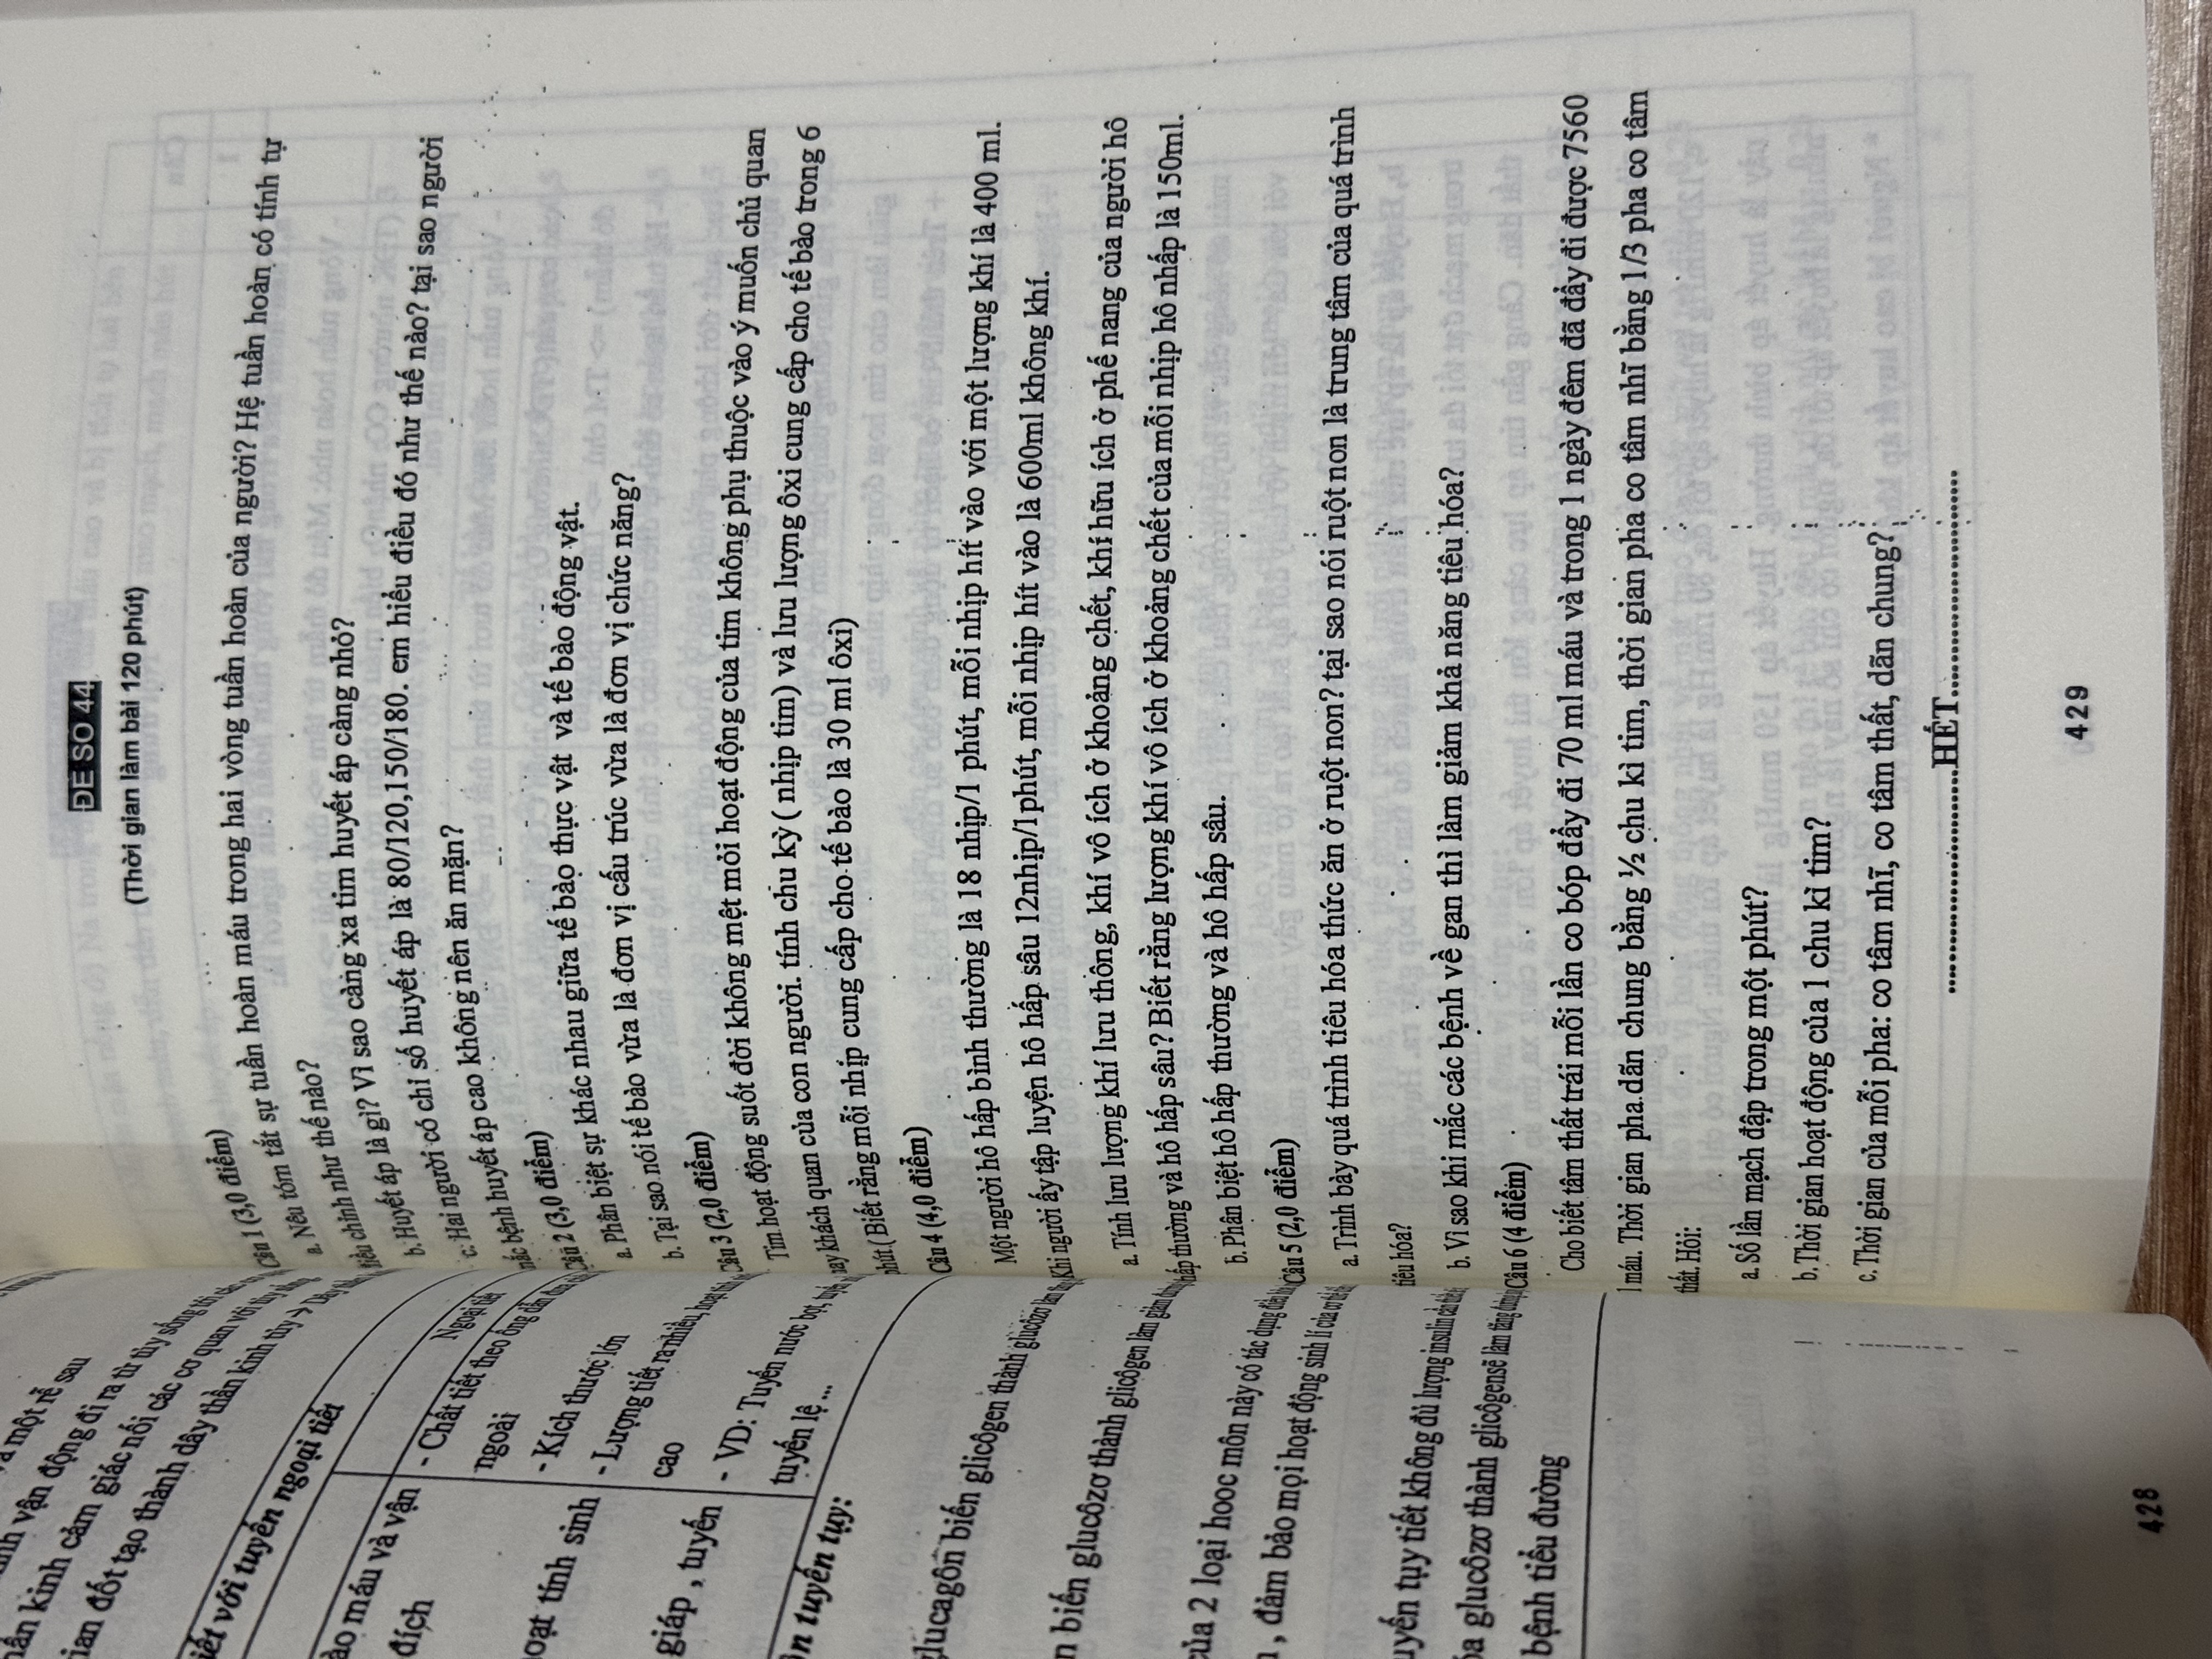 à một rễ sau
vận động đi ra từ tủy sống tới
thần kinh cảm giác nối các cơ quan với tủy sống
gian đốt tạo thành dây thần kinh tủy → Dây
tiết với tuyến ngoại tiết
Ngoại tiết
ào máu và vận
đích
- Chất tiết theo ống dẫn
ngoài
oạt tính sinh
- Kích thước lớn
- Lượng tiết ra nhiều, hoạt
cao
giáp , tuyến
- VD: Tuyến nước bọt, tuyến
tuyến lệ...
n tuyến tụy:
glucagôn biến glicôgen thành glucôzơ
n biến glucôzơ thành glicôgen làm giảm
của 2 loại hooc môn này có tác dụng
, đảm bảo mọi hoạt động sinh lí của cơ thể
uyến tụy tiết không đủ lượng insulin
óa glucôzơ thành glicôgensẽ làm tăng
bệnh tiểu đường
428
ĐỀ SỐ 44
(Thời gian làm bài 120 phút)
Câu 1 (3,0 điểm)
a. Nêu tóm tắt sự tuần hoàn máu trong hai vòng tuần hoàn của người? Hệ tuần hoàn có tính tự
điều chỉnh như thế nào?
b. Huyết áp là gì? Vì sao càng xa tim huyết áp càng nhỏ?
c. Hai người có chỉ số huyết áp là 80/120,150/180. em hiểu điều đó như thế nào? tại sao người
mắc bệnh huyết áp cao không nên ăn mặn?
Câu 2 (3,0 điểm)
a. Phân biệt sự khác nhau giữa tế bào thực vật và tế bào động vật.
b. Tại sao nói tế bào vừa là đơn vị cấu trúc vừa là đơn vị chức năng?
Câu 3 (2,0 điểm)
Tim hoạt động suốt đời không mệt mỏi hoạt động của tim không phụ thuộc vào ý muốn chủ quan
hay khách quan của con người. tính chu kỳ ( nhịp tim) và lưu lượng ôxi cung cấp cho tế bào trong 6
phút.( Biết rằng mỗi nhịp cung cấp cho tế bào là 30 ml ôxi)
Câu 4 (4,0 điểm)
Một người hô hấp bình thường là 18 nhịp/1 phút, mỗi nhịp hít vào với một lượng khí là 400 ml.
Khi người ấy tập luyện hô hấp sâu 12nhịp/1phút, mỗi nhịp hít vào là 600ml không khí.
a. Tính lưu lượng khí lưu thông, khí vô ích ở khoảng chết, khí hữu ích ở phế nang của người hô
hấp thường và hô hấp sâu? Biết rằng lượng khí vô ích ở khoảng chết của mỗi nhịp hô nhấp là 150ml.
b. Phân biệt hô hấp thường và hô hấp sâu.
Câu 5 (2,0 điểm)
a. Trình bày quá trình tiêu hóa thức ăn ở ruột non? tại sao nói ruột non là trung tâm của quá trình
tiêu hóa?
b. Vì sao khi mắc các bệnh về gan thì làm giảm khả năng tiêu hóa?
Câu 6 (4 điểm)
Cho biết tâm thất trái mỗi lần co bóp đẩy đi 70 ml máu và trong 1 ngày đêm đã đẩy đi được 7560
l máu. Thời gian pha dãn chung bằng ½ chu kì tim, thời gian pha co tâm nhĩ bằng 1/3 pha co tâm
thất. Hỏi:
a. Số lần mạch đập trong một phút?
b. Thời gian hoạt động của 1 chu kì tim?
c. Thời gian của mỗi pha: co tâm nhĩ, co tâm thất, dãn chung?
...............................HẾT...............................
429